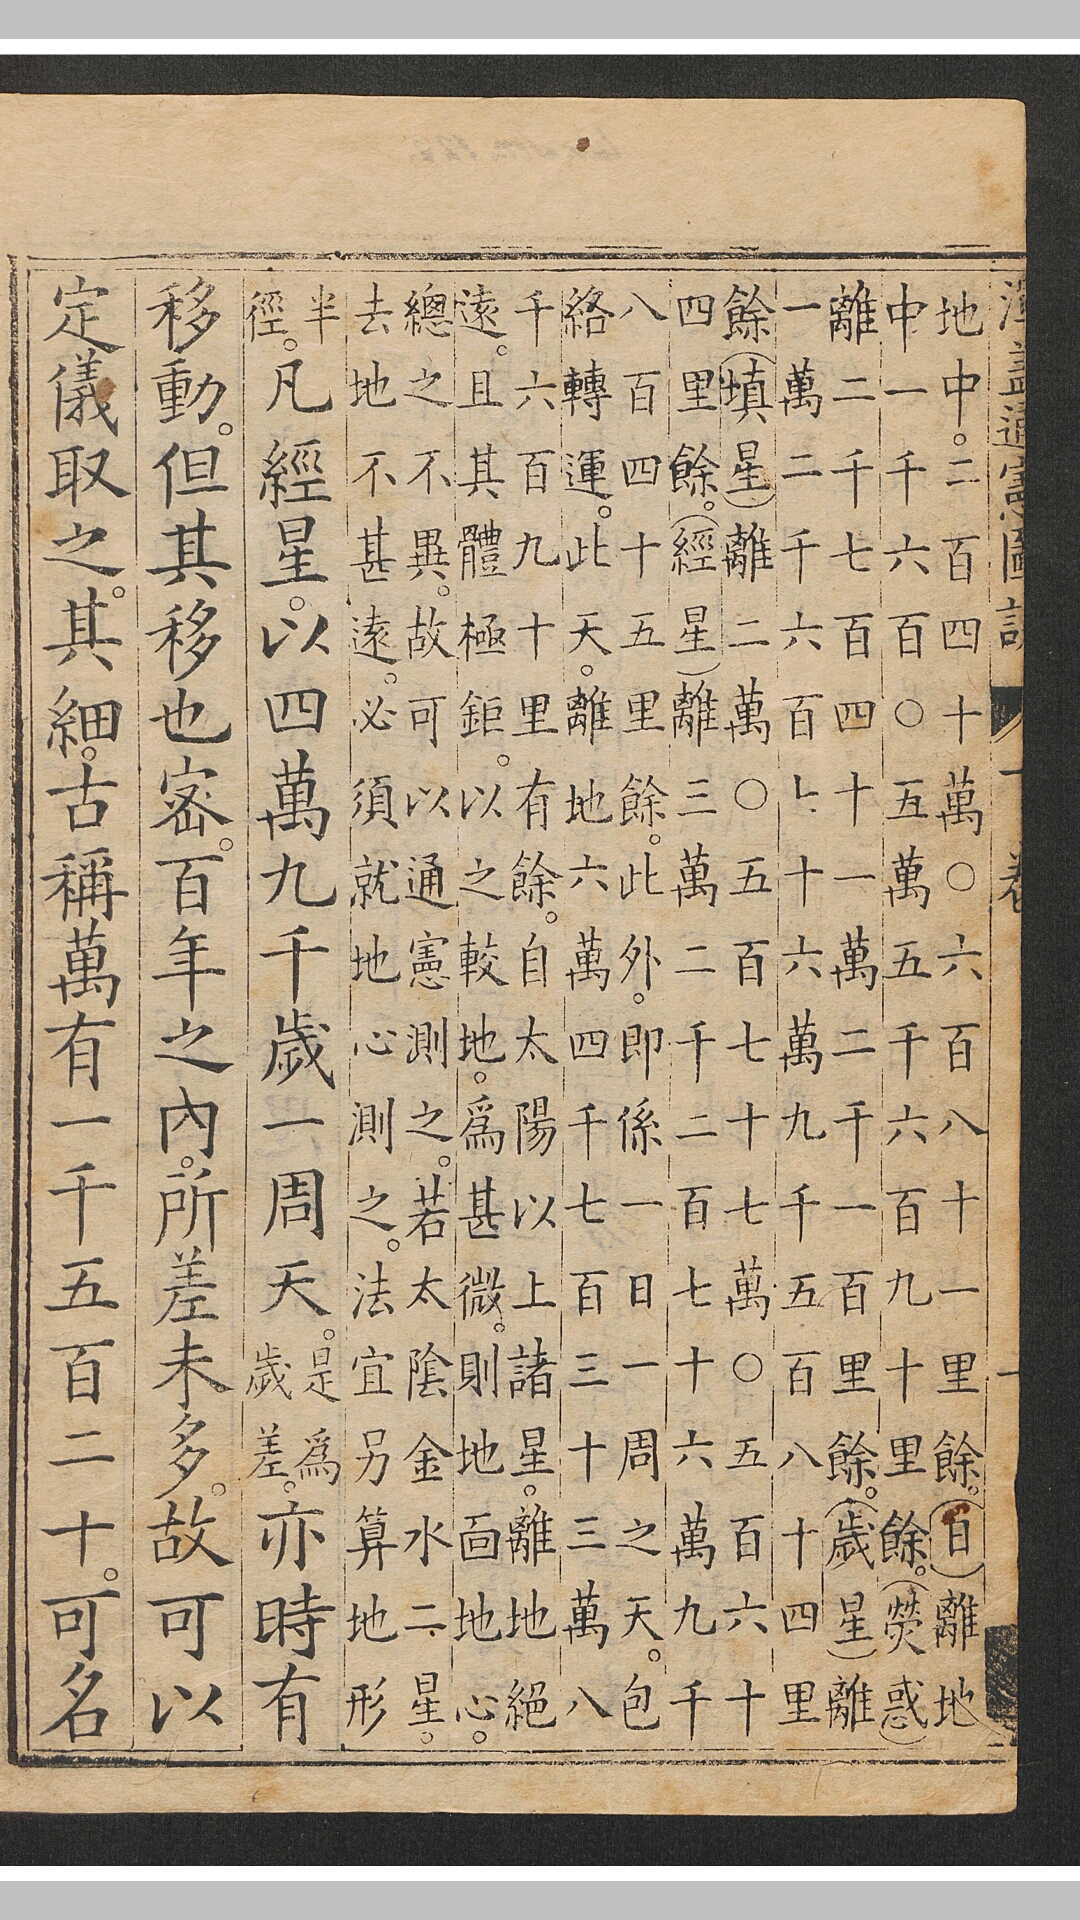 渾蓋通憲圖說
卷
地中。二百四十萬〇六百八十一里餘。(日)離地
中一千六百〇五萬五千六百九十里餘。(熒惑)
離二千七百四十一萬二千一百里餘。(歲星)離
一萬二千六百七十六萬九千五百八十四里
餘(填星)離二萬〇五百七十七萬〇五百六十
四里餘。(經星)離三萬二千二百七十六萬九千
八百四十五里餘。此外。即係一日一周之天。包
絡轉運。此天。離地六萬四千七百三十三萬八
千六百九十里有餘。自太陽以上諸星。離地絕
遠。且其體極鉅。以之較地。爲甚微。則地面地心。
總之不異。故可以通憲測之。若太陰金水二星。
去地不甚遠。必須就地心測之。法宜另算地形
半徑。凡經星。以四萬九千歲一周天。是爲歲差。亦時有
移動。但其移也宻。百年之內。所差未多。故可以
定儀取之。其細。古稱萬有一千五百二十。可名